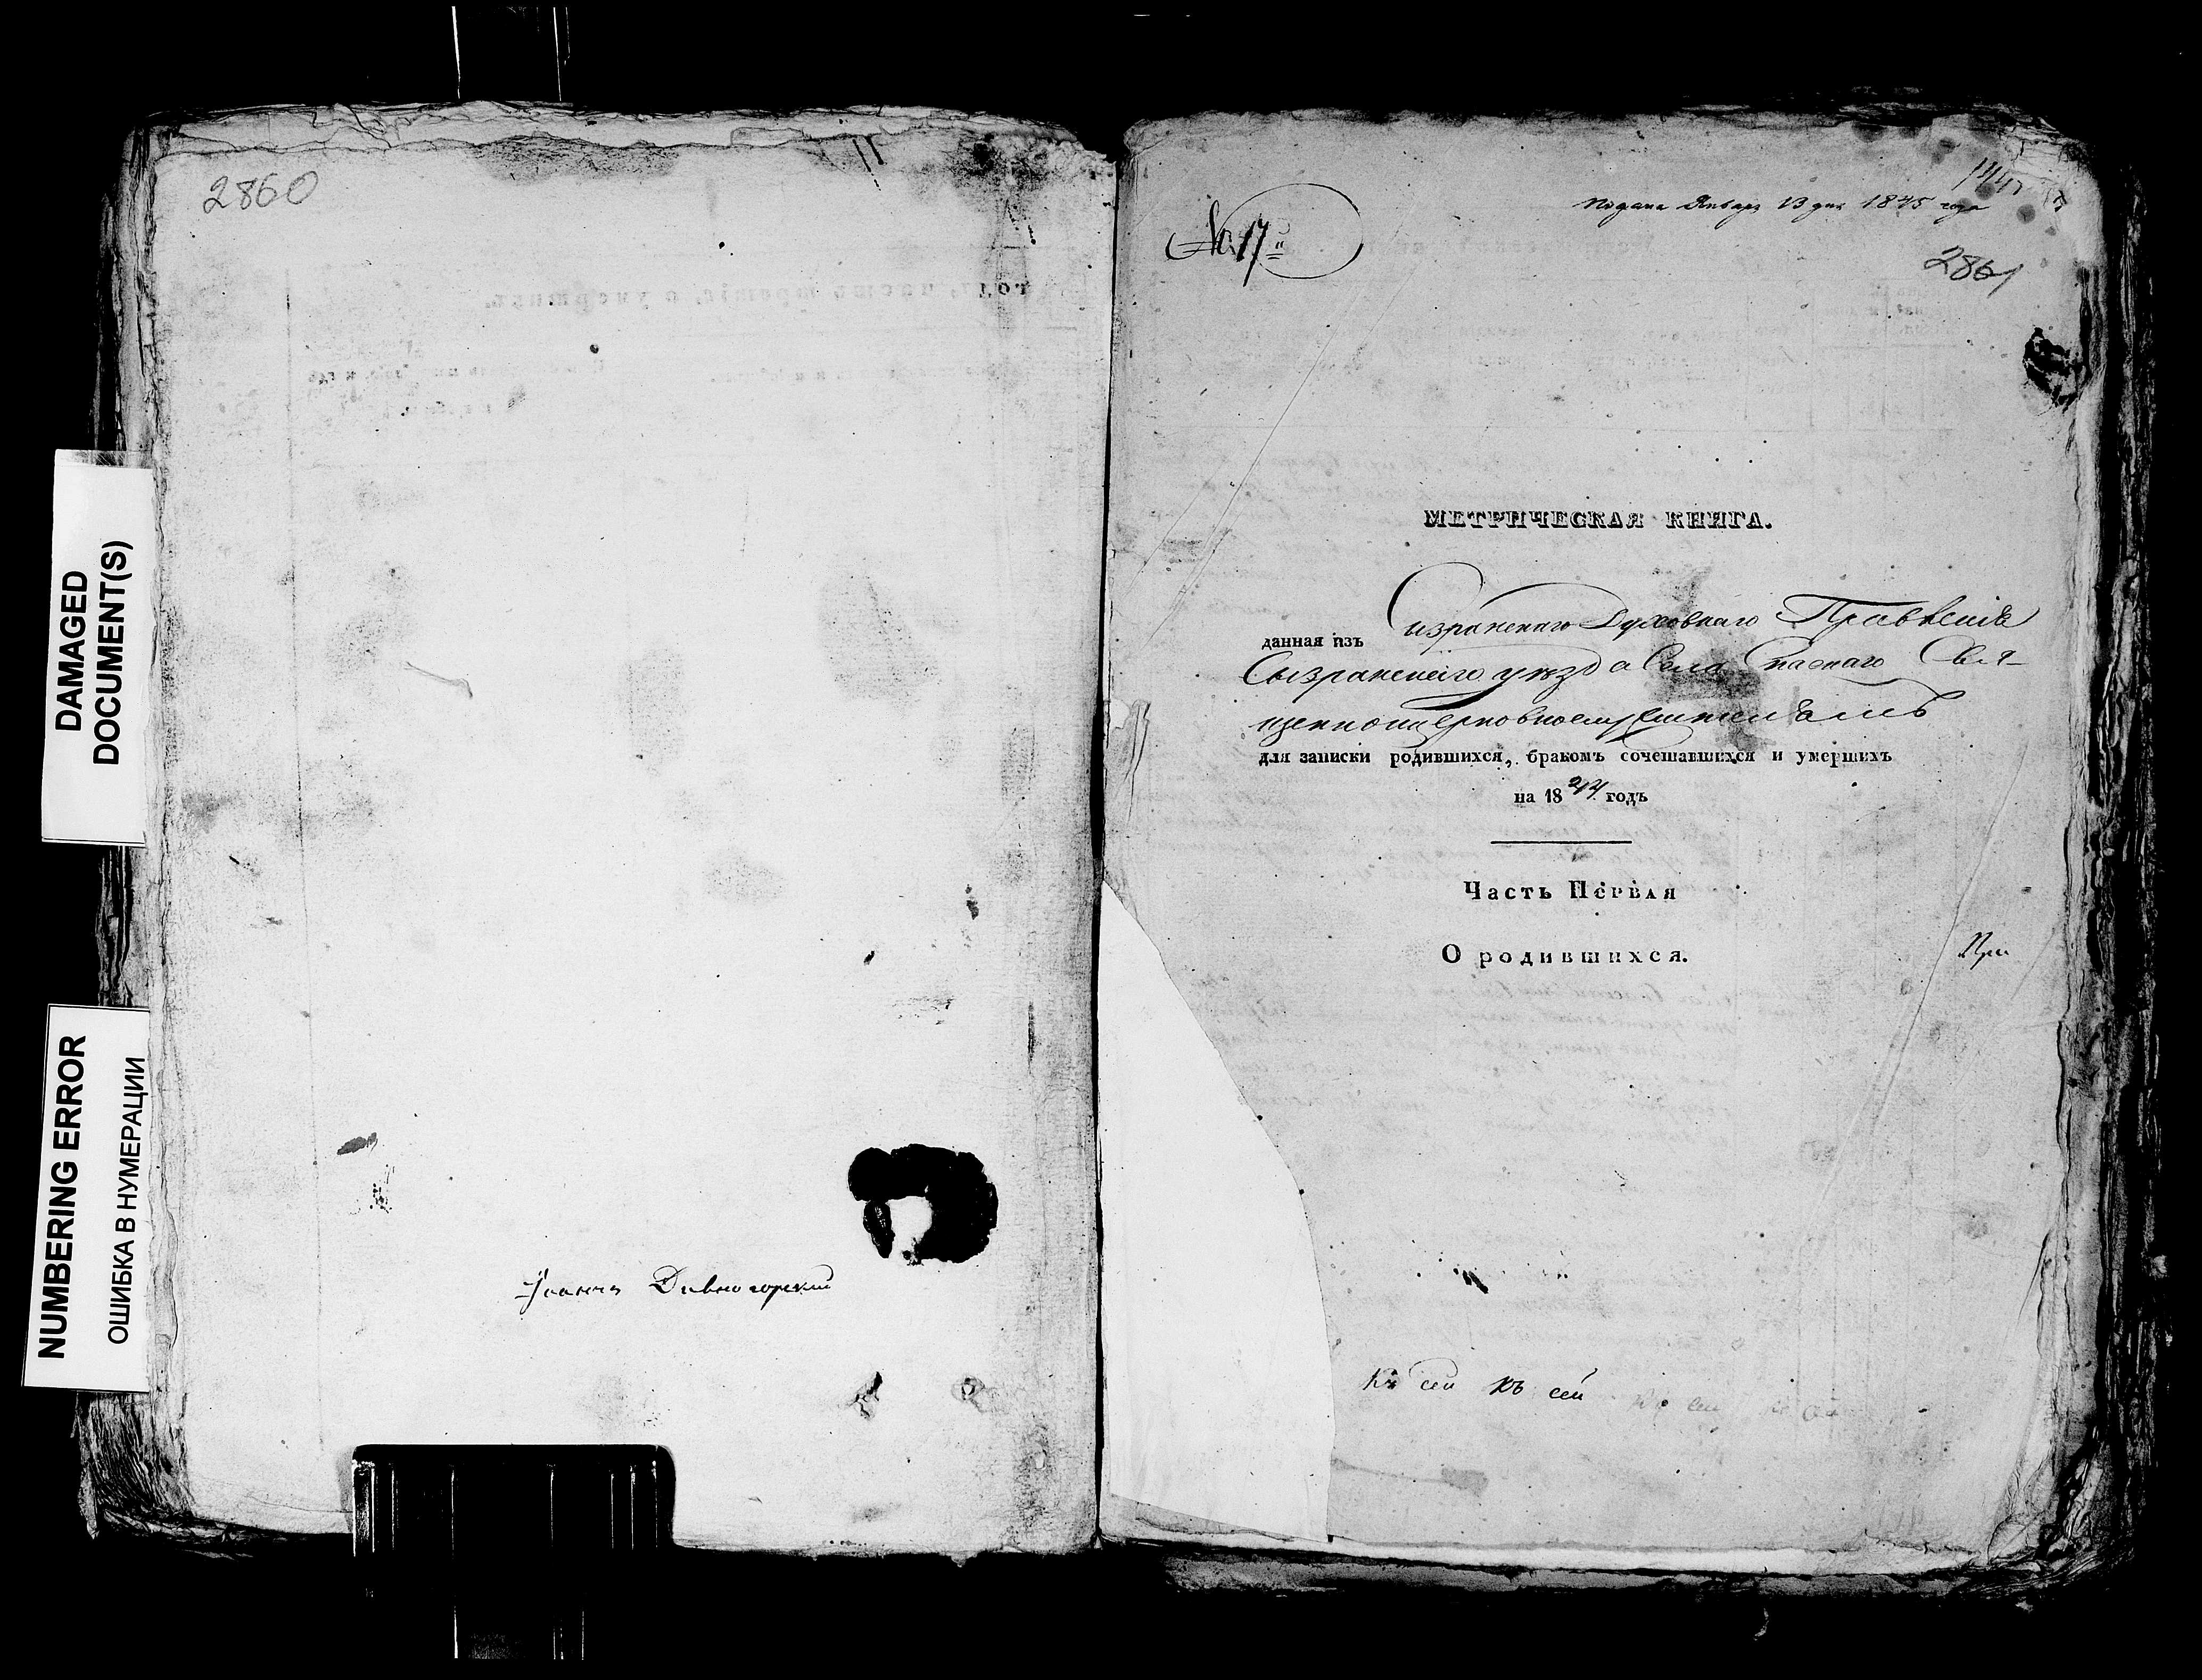 2860
DAMAGED
DOCUMENT(S)
NUMBERING ERROR
ОШИБКА В НУМЕРАЦИИ
Іоаннъ Дивногорскій
№ 17й
подана Января 13 дня 1845 года
2861
МЕТРИЧЕСКАЯ КНИГА.
данная изъ Сызранскаго Духовнаго Правленія
Сызранскаго уѣзда Села Спаскаго Свя-
щенноцерковнослужителямъ
для записки родившихся, бракомъ сочетавшихся и умершихъ
на 1844 годъ
Часть Первая
О родившихся.
При
Къ сей къ сей